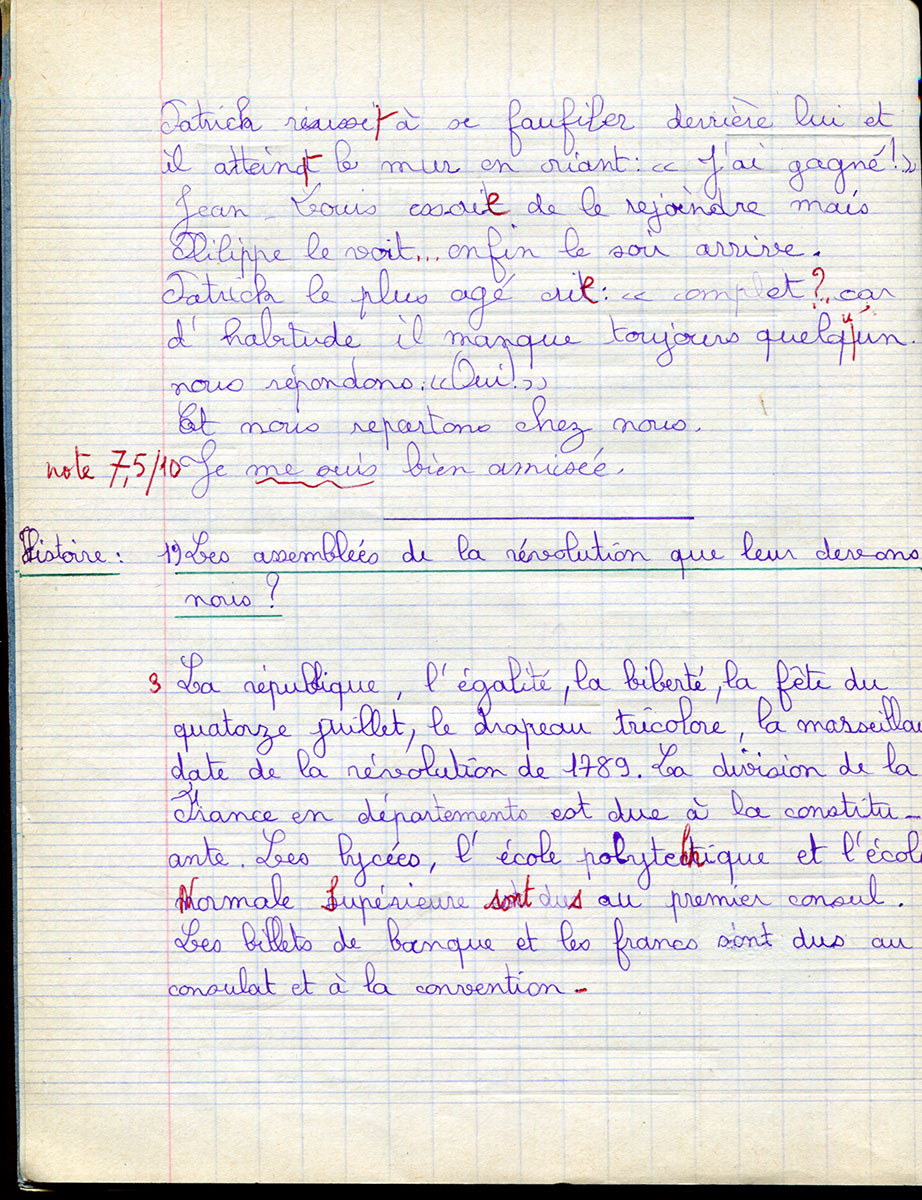 Patrick réussit à se faufiler derrière lui et
il atteint le mur en criant : « J'ai gagné ! »
Jean-Louis essaie de le rejoindre mais
Philippe le voit... enfin le soir arrive.
Patrick le plus agé crie : « complet ? », car
d'habitude il manque toujours quelqu'un.
nous répondons : « Oui ! »
Et nous repartons chez nous.
note 7,5/10 Je me suis bien amusée.
Histoire : 1) Les assemblées de la révolution que leur devons
nous ?
3 La république, l'égalité, la liberté, la fête du
quatorze juillet, le drapeau tricolore, la marseillai
date de la révolution de 1789. La division de la
France en départements est due à la constitu-
ante. Les lycées, l'école polytechnique et l'écol
Normale Supérieure sont dus au premier consul.
Les billets de banque et les francs sont dus au
consulat et à la convention -